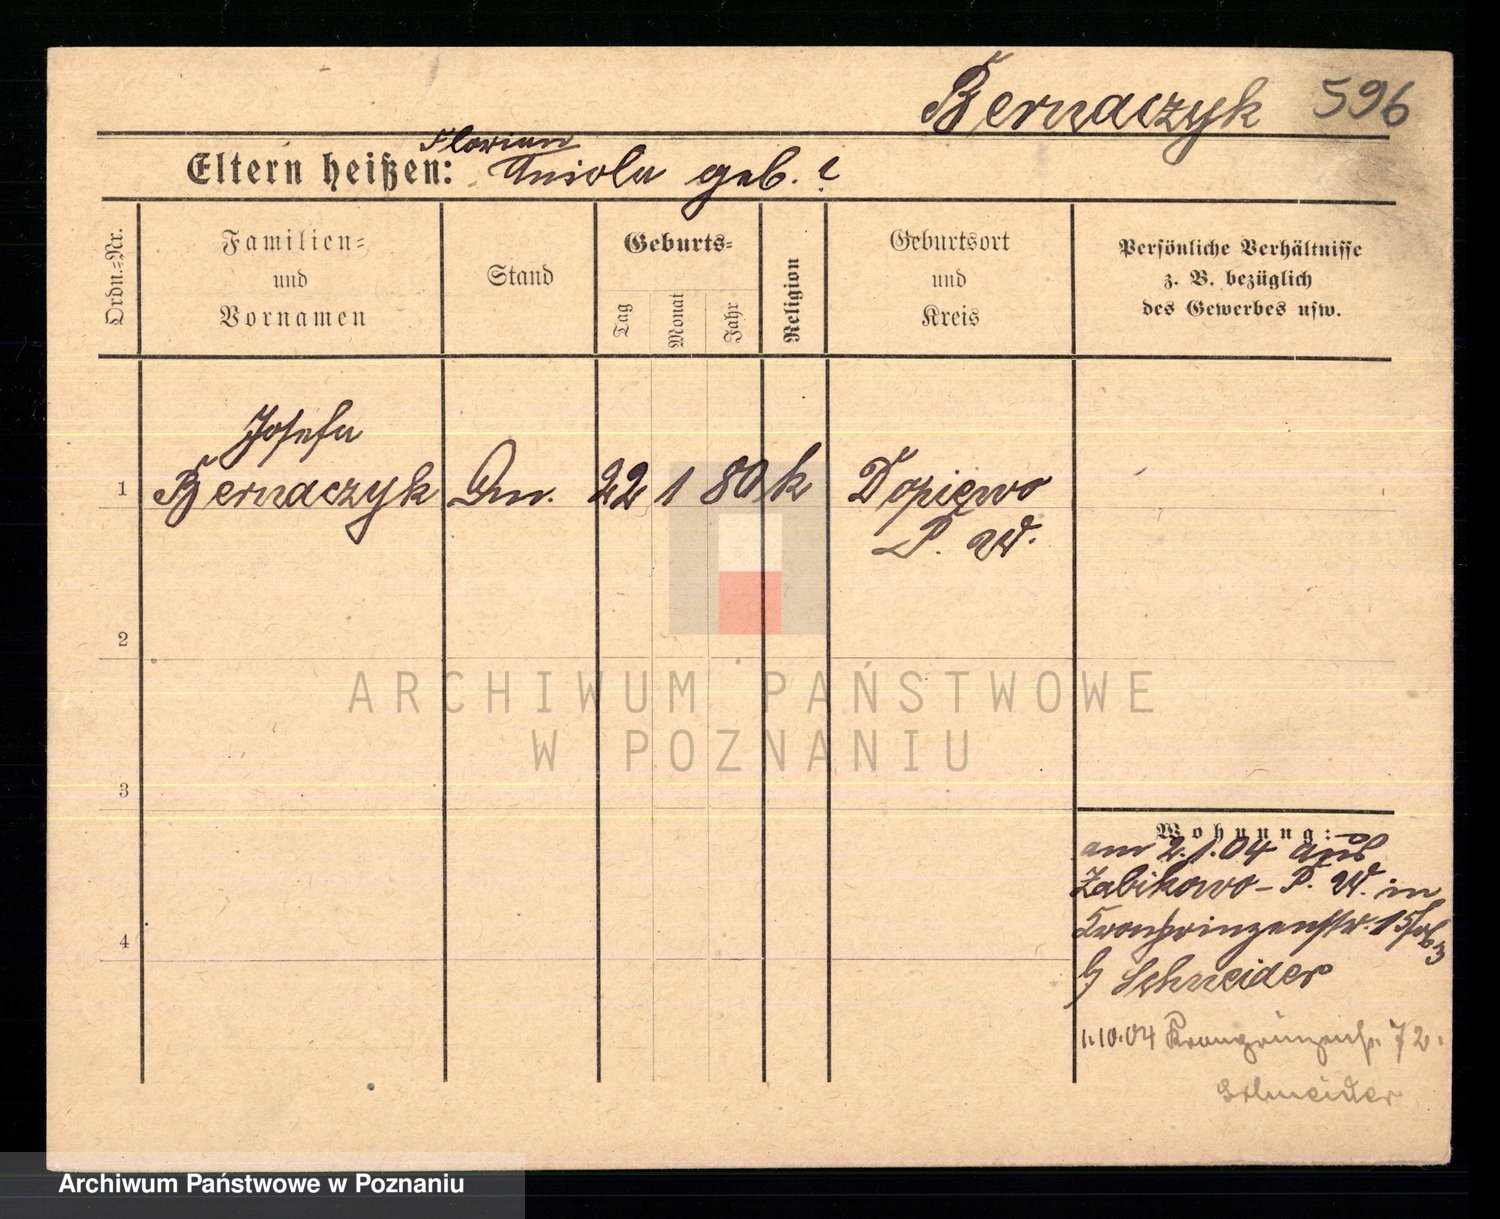 Bernaczyk 596
Florian
Eltern heißen: Aniola geb. ?
Ordn.-Nr.
Familien-
und
Vornamen
Stand
Geburts-
Tag
Monat
Jahr
Religion
Geburtsort
und
Kreis
Persönliche Verhältnisse
z. B. bezüglich
des Gewerbes usw.
Josefa
1 Bernaczyk Dm. 22 1 80 k Dopiewo
P. W.
2
ARCHIWUM PAŃSTWOWE
W POZNANIU
3
Wohnung:
am 2.1.04 aus
Zabikowo - P. W. in
Kronprinzenstr. 15
b/ Schneider
1.10.04 Kronprinzenstr. 72.
Schneider
4
Archiwum Państwowe w Poznaniu